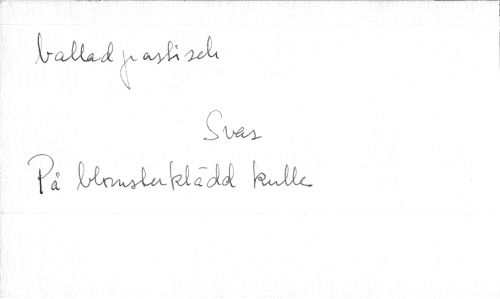 balladpastisch
Svas
På blomsterklädd kulle